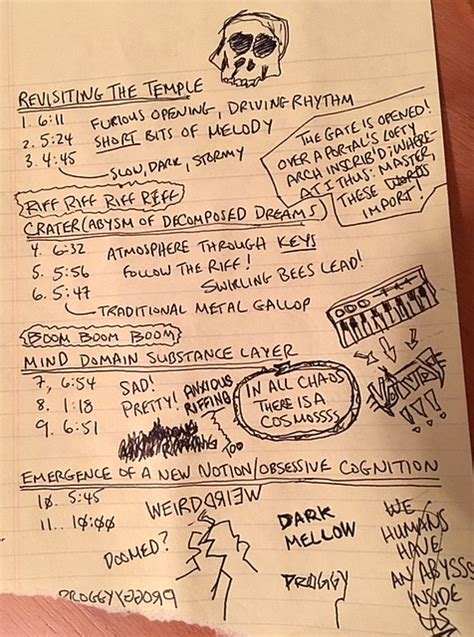 REVISITING THE TEMPLE
1. 6:11 FURIOUS OPENING, DRIVING RHYTHM
2. 5:24 SHORT BITS OF MELODY
3. 4:45
SLOW, DARK, STORMY
THE GATE IS OPENED!
OVER A PORTAL'S LOFTY
ARCH INSCRIB'D; WHERE-
AT I THUS: MASTER,
THESE WORDS
IMPORT!
RIFF RIFF RIFF RIFF
CRATER (ABYSM OF DECOMPOSED DREAMS)
4. 6:32 ATMOSPHERE THROUGH KEYS
5. 5:56 FOLLOW THE RIFF!
6. 5:47 SWIRLING BEES LEAD!
TRADITIONAL METAL GALLOP
BOOM BOOM BOOM
MIND DOMAIN SUBSTANCE LAYER
7, 6:54 SAD!
8. 1:18 PRETTY! ANXIOUS
RIFFING
9. 6:51
TOO
IN ALL CHAOS
THERE IS A
COSMOSSSS
VOIVOD
EMERGENCE OF A NEW NOTION/OBSESSIVE COGNITION
10. 5:45 WEIRDWEIRD
11.. 10:00
DOOMED?
PROGGYYGGORP
DARK
MELLOW
PROGGY
WE
HUMANS
HAVE
AN ABYSSS
INSIDE
US